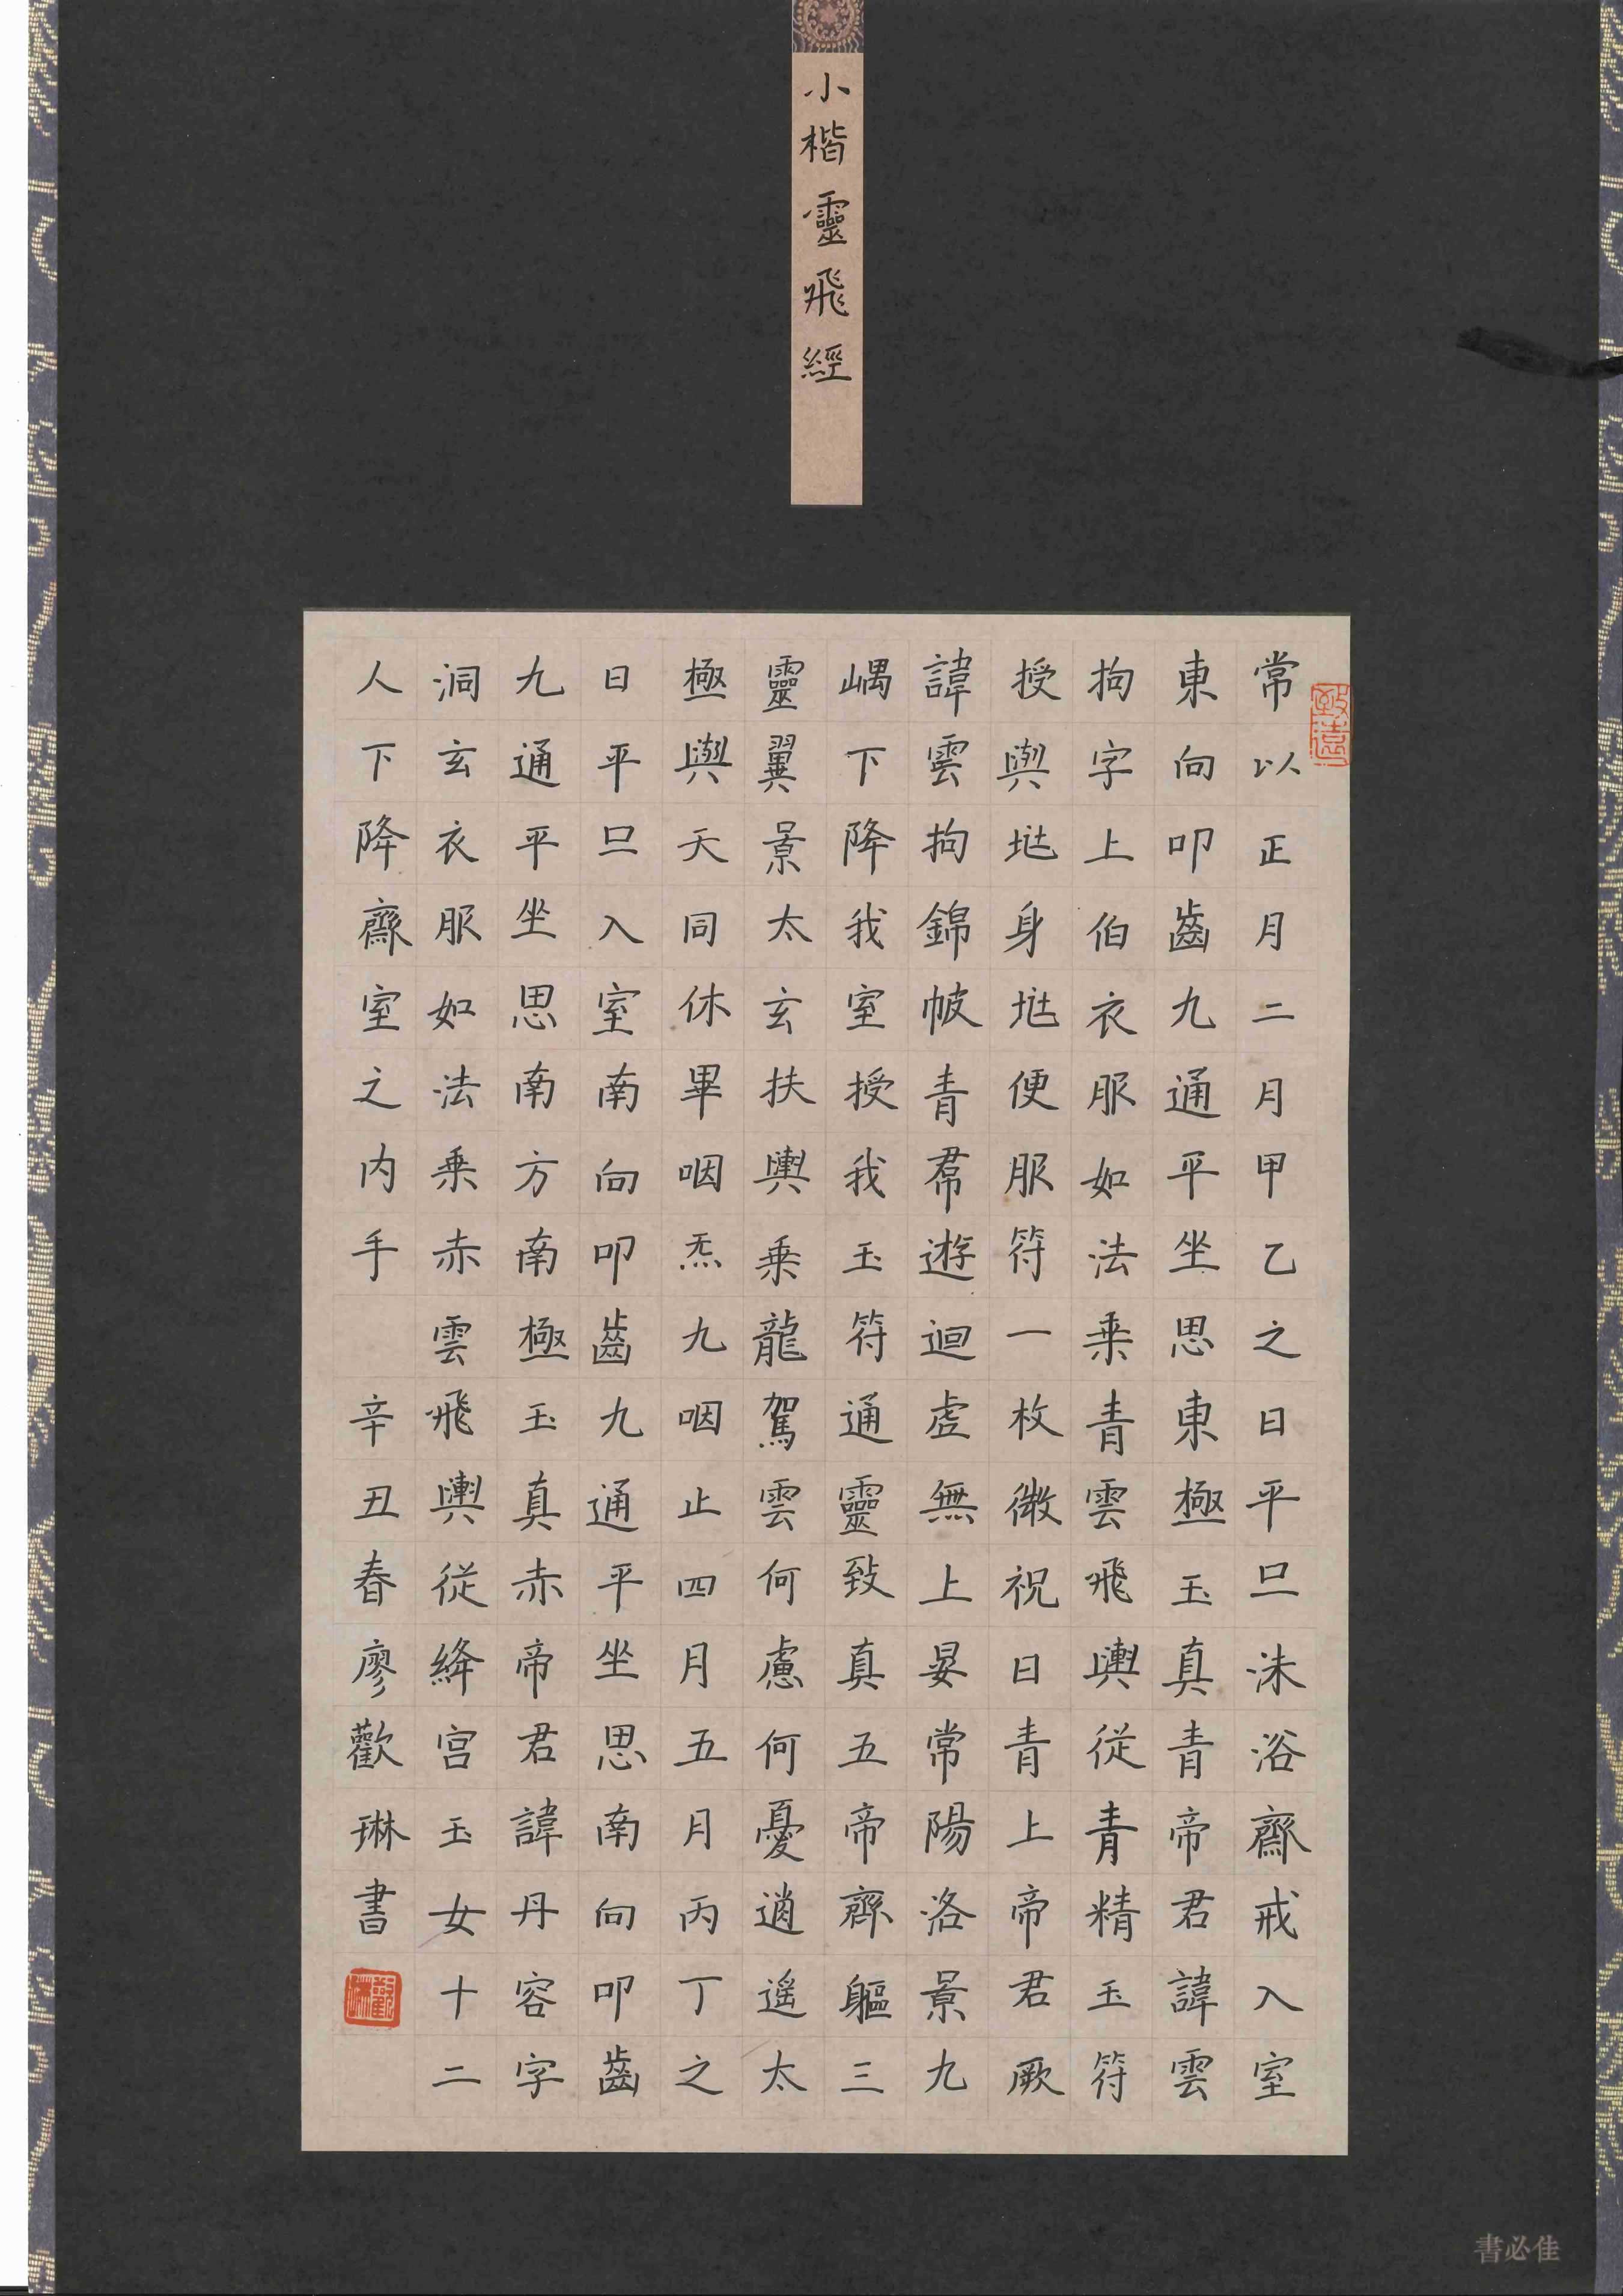 小楷靈飛經
常以正月二月甲乙之日平旦沐浴齋戒入室
東向叩齒九通平坐思東極玉真青帝君諱雲
拘字上伯衣服如法乘青雲飛輿從青精玉符
授與兆身兆便服符一枚微祝曰青上帝君厥
諱雲拘錦帔青帬遊迴虛無上晏常陽洛景九
嵎下降我室授我玉符通靈致真五帝齊軀三
靈翼景太玄扶輿乘龍駕雲何慮何憂逍遙太
極與天同休畢咽炁九咽止四月五月丙丁之
日平旦入室南向叩齒九通平坐思南向叩齒
九通平坐思南方南極玉真赤帝君諱丹容字
洞玄衣服如法乘赤雲飛輿從絳宮玉女十二
人下降齋室之內手 辛丑春廖歡琳書
歡琳
書必佳